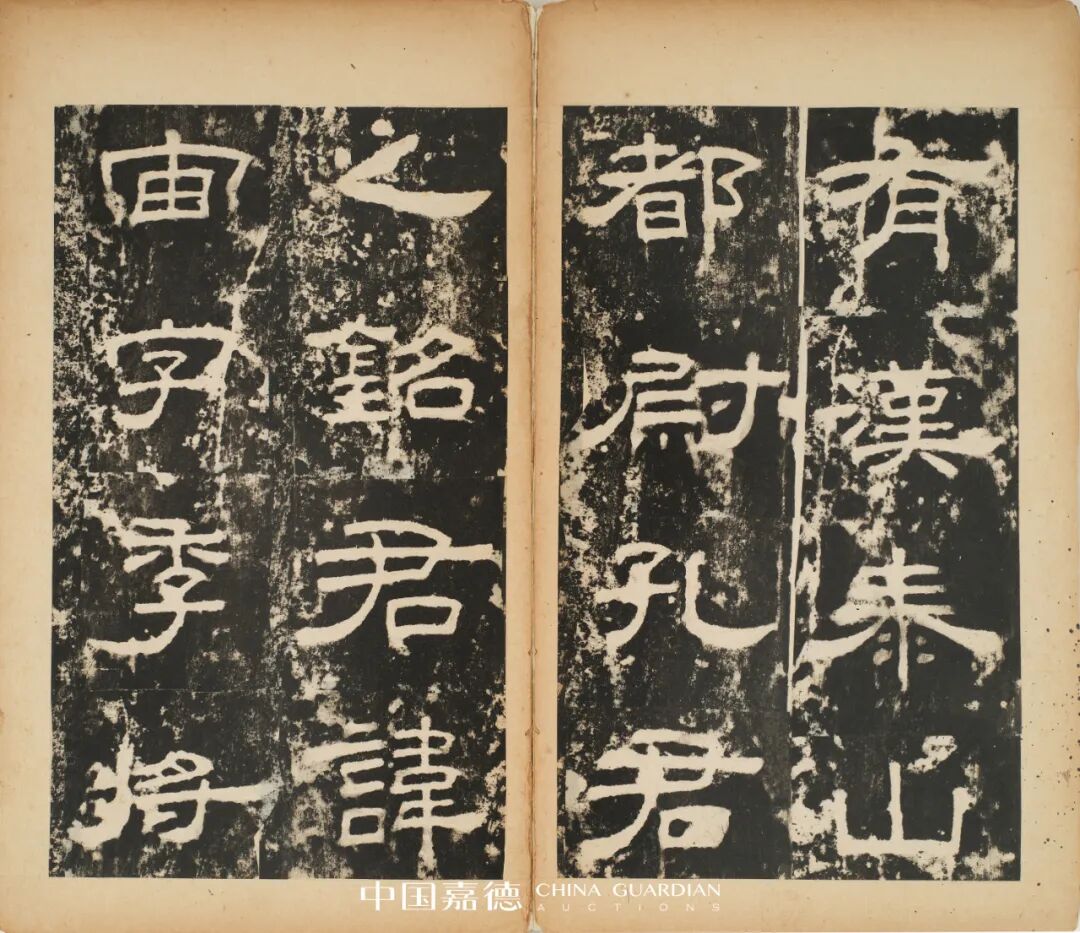 有漢泰山
都尉孔君
之銘君諱
宙字季將
中国嘉德 CHINA GUARDIAN
AUCTIONS